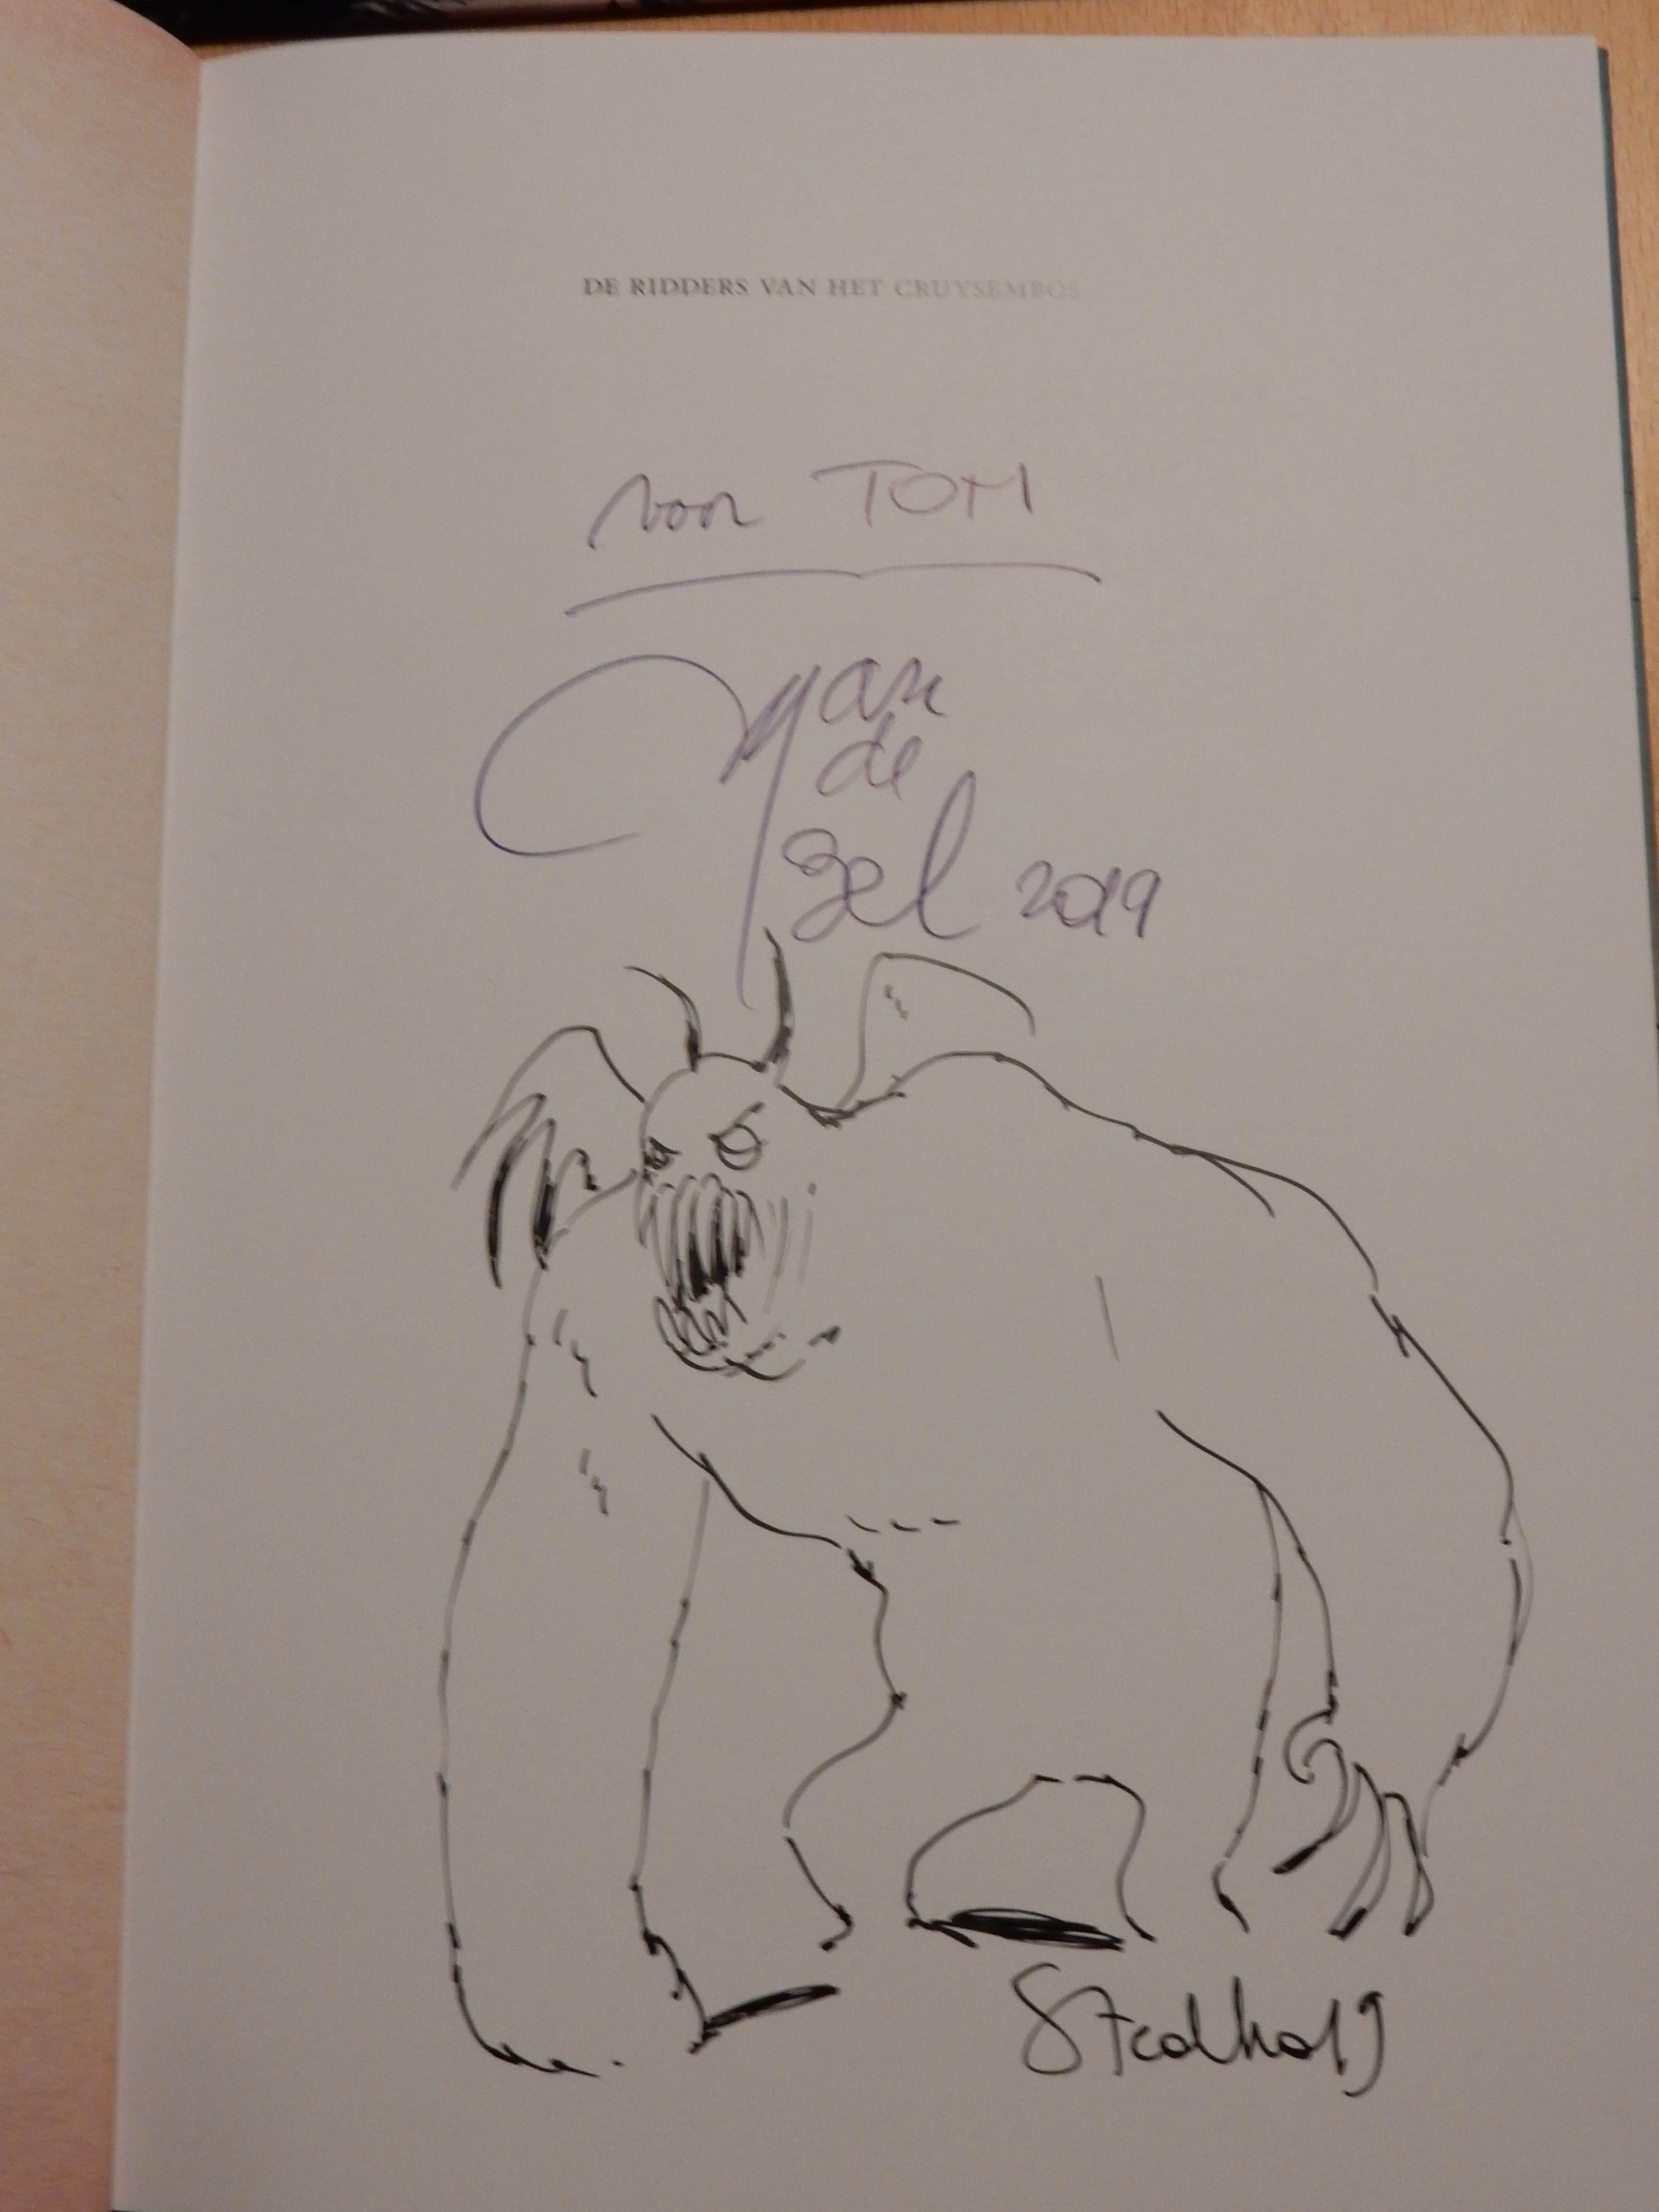 DE RIDDERS VAN HET CRUYSEMBOS
voor TOM
Jan
de
Zel 2019
Stedho19